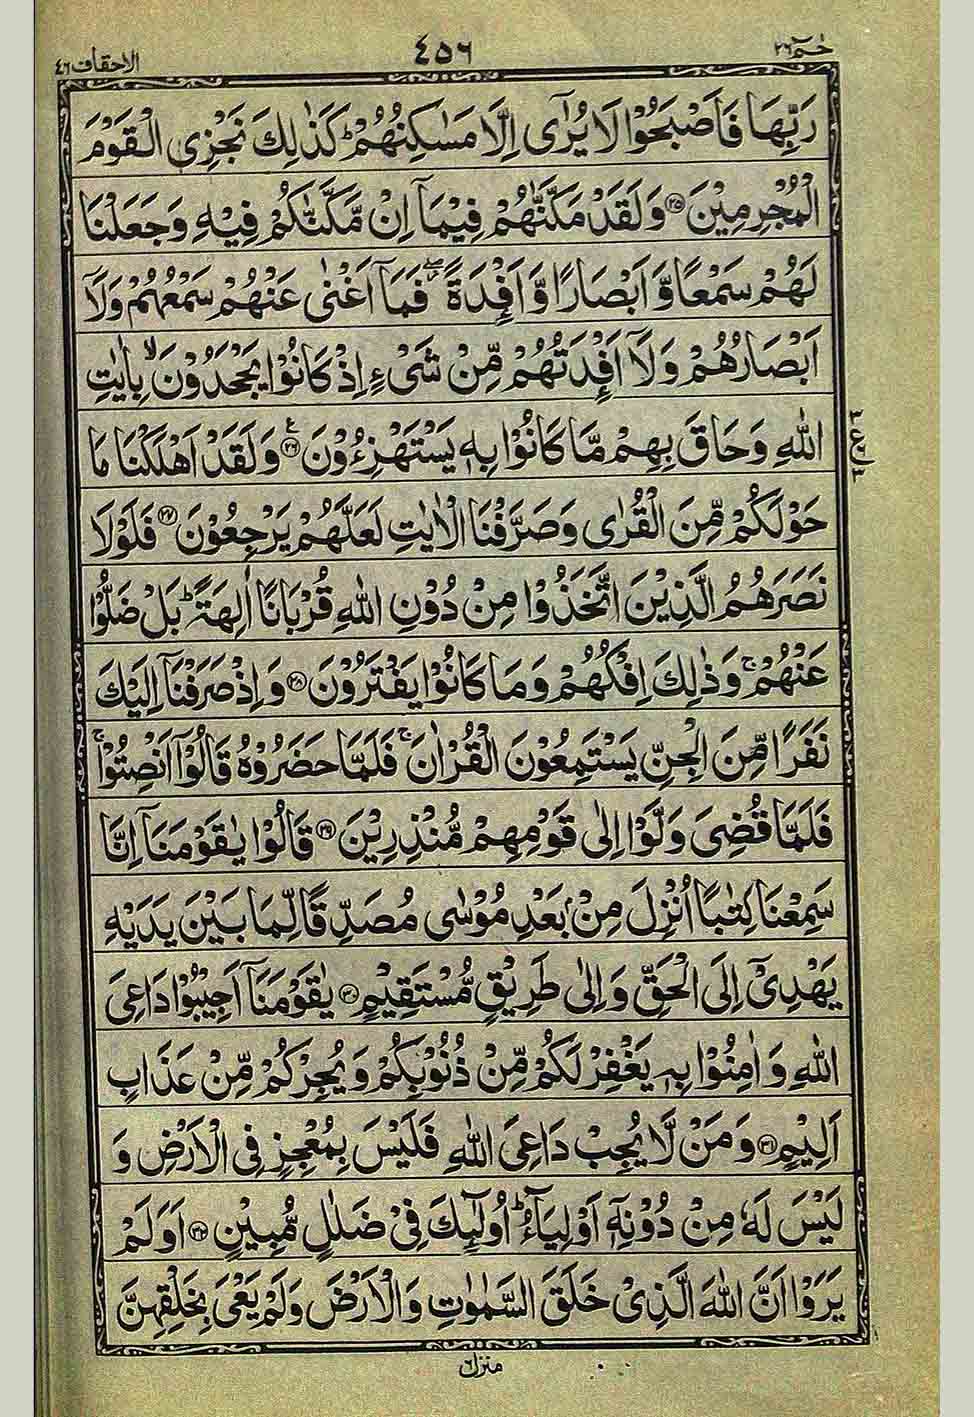 حٰمٓ ٢٦
٤٥٦
الاحقاف ٤٦
رَبِّهَا فَاَصْبَحُوْا لَا يُرٰٓى اِلَّا مَسٰكِنُهُمْ ؕ كَذٰلِكَ نَجْزِى الْقَوْمَ
الْمُجْرِمِيْنَ ﴿۲۵﴾ وَ لَقَدْ مَكَّنّٰهُمْ فِيْمَاۤ اِنْ مَّكَّنّٰكُمْ فِيْهِ وَ جَعَلْنَا
لَهُمْ سَمْعًا وَّ اَبْصَارًا وَّ اَفْـِٕدَةً ۖؗ فَمَاۤ اَغْنٰى عَنْهُمْ سَمْعُهُمْ وَ لَاۤ
اَبْصَارُهُمْ وَ لَاۤ اَفْـِٕدَتُهُمْ مِّنْ شَىْءٍ اِذْ كَانُوْا يَجْحَدُوْنَ ۙ بِاٰيٰتِ
اللّٰهِ وَ حَاقَ بِهِمْ مَّا كَانُوْا بِهٖ يَسْتَهْزِءُوْنَ ﴿۲۶﴾ ع وَ لَقَدْ اَهْلَكْنَا مَا
حَوْلَكُمْ مِّنَ الْقُرٰى وَ صَرَّفْنَا الْاٰيٰتِ لَعَلَّهُمْ يَرْجِعُوْنَ ﴿۲۷﴾ فَلَوْ لَا
نَصَرَهُمُ الَّذِيْنَ اتَّخَذُوْا مِنْ دُوْنِ اللّٰهِ قُرْبَانًا اٰلِهَةً ؕ بَلْ ضَلُّوْا
عَنْهُمْ ۚ وَ ذٰلِكَ اِفْكُهُمْ وَ مَا كَانُوْا يَفْتَرُوْنَ ﴿۲۸﴾ وَ اِذْ صَرَفْنَاۤ اِلَيْكَ
نَفَرًا مِّنَ الْجِنِّ يَسْتَمِعُوْنَ الْقُرْاٰنَ ۚ فَلَمَّا حَضَرُوْهُ قَالُوْۤا اَنْصِتُوْا ۚ
فَلَمَّا قُضِىَ وَلَّوْا اِلٰى قَوْمِهِمْ مُّنْذِرِيْنَ ﴿۲۹﴾ قَالُوْا يٰقَوْمَنَاۤ اِنَّا
سَمِعْنَا كِتٰبًا اُنْزِلَ مِنْۢ بَعْدِ مُوْسٰى مُصَدِّقًا لِّمَا بَيْنَ يَدَيْهِ
يَهْدِىْۤ اِلَى الْحَقِّ وَ اِلٰى طَرِيْقٍ مُّسْتَقِيْمٍ ﴿۳۰﴾ يٰقَوْمَنَاۤ اَجِيْبُوْا دَاعِىَ
اللّٰهِ وَ اٰمِنُوْا بِهٖ يَغْفِرْ لَكُمْ مِّنْ ذُنُوْبِكُمْ وَ يُجِرْكُمْ مِّنْ عَذَابٍ
اَلِيْمٍ ﴿۳۱﴾ وَ مَنْ لَّا يُجِبْ دَاعِىَ اللّٰهِ فَلَيْسَ بِمُعْجِزٍ فِى الْاَرْضِ وَ
لَيْسَ لَهٗ مِنْ دُوْنِهٖۤ اَوْلِيَآءُ ؕ اُولٰٓئِكَ فِىْ ضَلٰلٍ مُّبِيْنٍ ﴿۳۲﴾ اَوَ لَمْ
يَرَوْا اَنَّ اللّٰهَ الَّذِىْ خَلَقَ السَّمٰوٰتِ وَ الْاَرْضَ وَ لَمْ يَعْىَ بِخَلْقِهِنَّ
منزل ٦